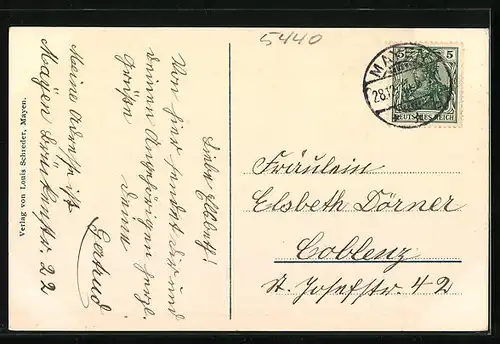 5440
Liebe Elsbeth!
Von hier sendet dir und
deinen Angehörigen herzl.
Grüße
deine
Gertrud
Meine Adresse ist
Mayen Brückenstr. 22
Verlag von Louis Schreder, Mayen.
MAYEN
28.12
5
DEUTSCHES REICH
Fräulein
Elsbeth Dörner
Coblenz
St. Josefstr. 42